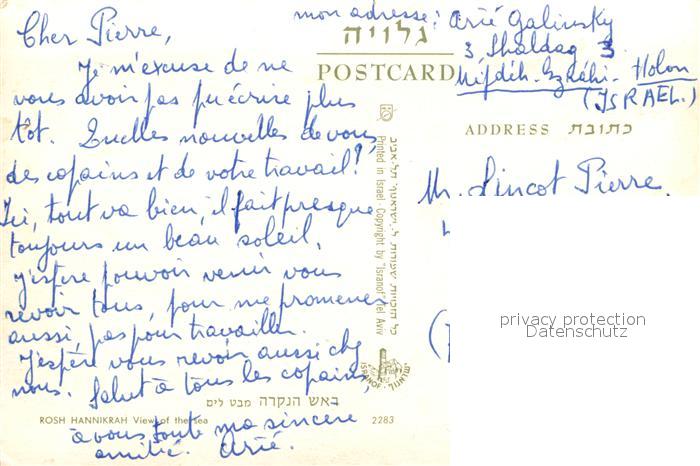 mon adresse: Arié Galinsky
3 Shaldag 3
Holon
(ISRAEL.)
גלויה
POSTCARD
ADDRESS כתובת
Cher Pierre,
Je m'excuse de ne
vous avoir pas pu écrire plus
tôt. Quelles nouvelles de vous,
des copains et de votre travail?
Ici, tout va bien, il fait presque
toujours un beau soleil.
J'espère pouvoir venir vous
revoir tous, pour me promener
aussi, pas pour travailler.
J'espère vous revoir aussi chez
nous. Salut à tous les copains,
à vous toute ma sincere
amitié. Arié.
Mr. Pierre.
כל הזכויות שמורות ל"ישראנוף" תל-אביב
Printed in Israel - Copyright by "Isranof" Tel Aviv
ISRANOF
ישראנוף
ראש הנקרה מבט לים
ROSH HANNIKRAH View of the sea
2283
privacy protection
Datenschutz